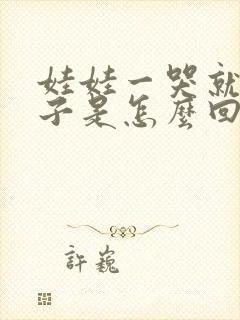 娃娃一哭就
子是怎麼回
許巍